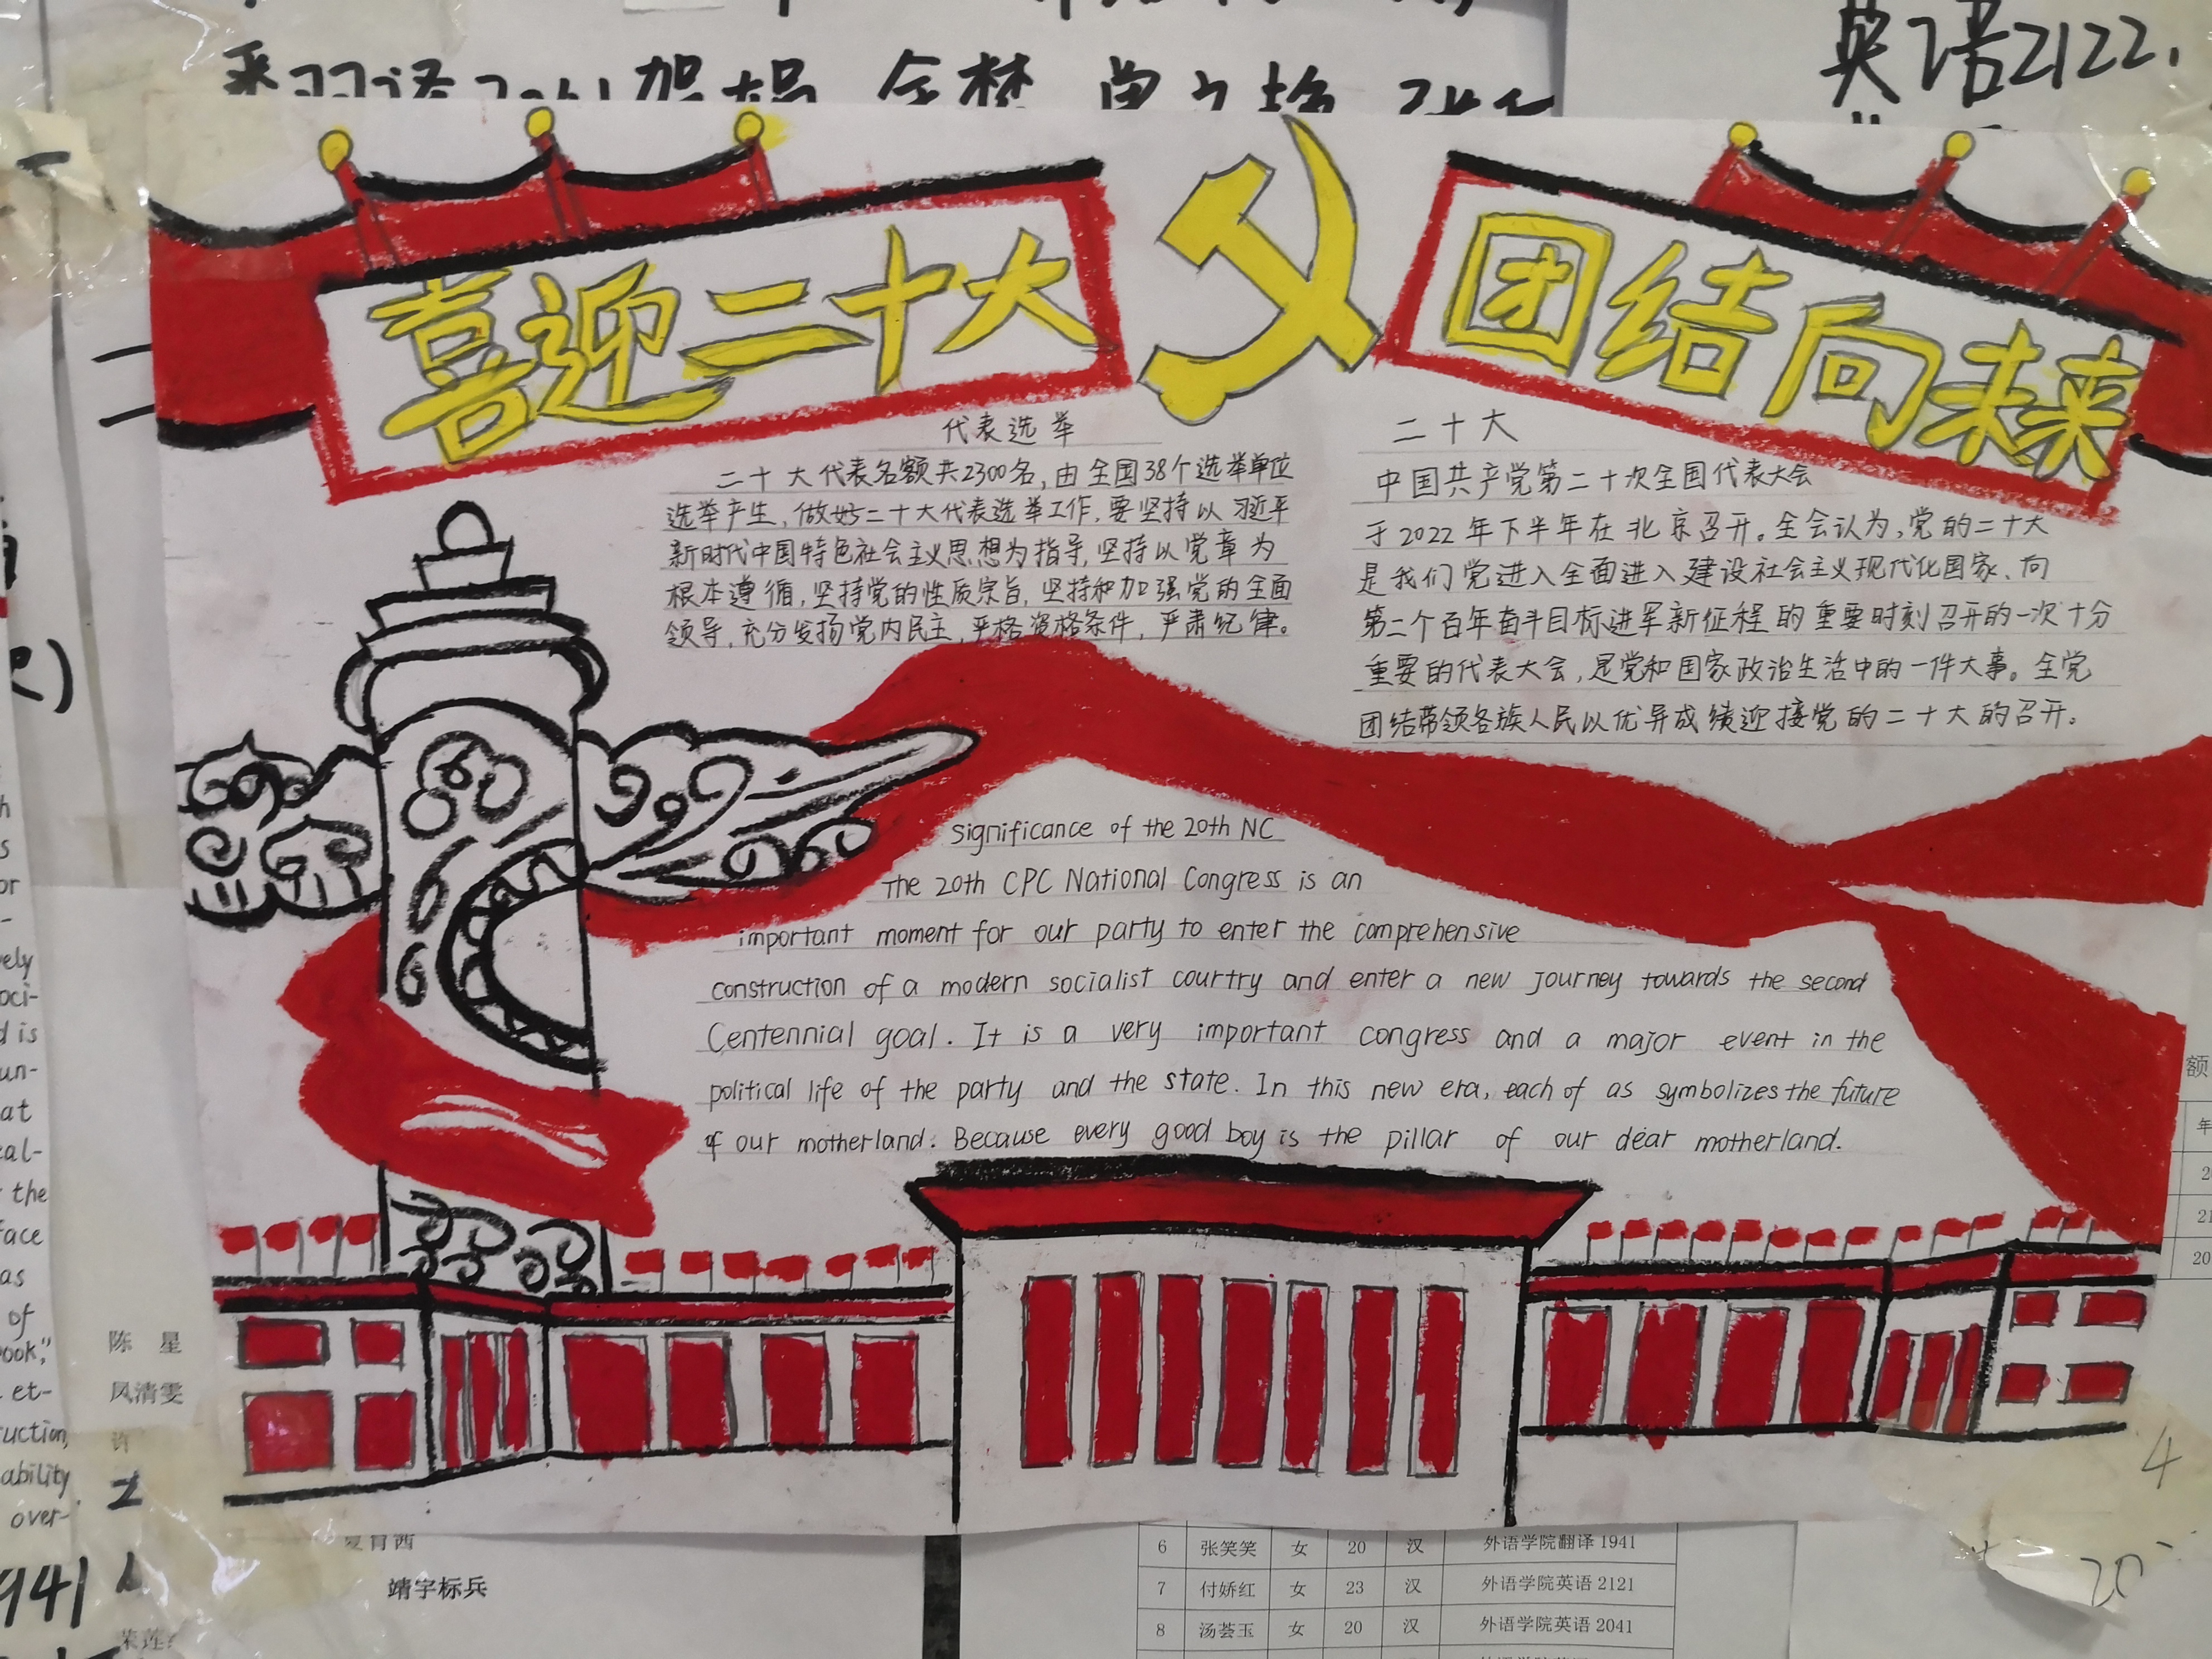 英语2122.
喜迎二十大
团结向未来
代表选举
二十大代表名额共2300名,由全国38个选举单位
选举产生,做好二十大代表选举工作,要坚持以习近平
新时代中国特色社会主义思想为指导,坚持以党章为
根本遵循,坚持党的性质宗旨,坚持和加强党的全面
领导,充分发扬党内民主,严格资格条件,严肃纪律。
二十大
中国共产党第二十次全国代表大会
于2022年下半年在北京召开。全会认为,党的二十大
是我们党进入全面进入建设社会主义现代化国家、向
第二个百年奋斗目标进军新征程的重要时刻召开的一次十分
重要的代表大会,是党和国家政治生活中的一件大事。全党
团结带领各族人民以优异成绩迎接党的二十大的召开。
significance of the 20th NC
The 20th CPC National Congress is an
important moment for our party to enter the comprehensive
construction of a modern socialist courtry and enter a new journey towards the second
Centennial goal. It is a very important congress and a major event in the
political life of the party and the state. In this new era, each of as symbolizes the future
of our motherland. Because every good boy is the pillar of our dear motherland.
the
face
as
of
et-
ability
over-
陈 星
风清雯
许
941
靖宇标兵
额
年
4
20
6 张笑笑 女 20 汉 外语学院翻译1941
7 付娇红 女 23 汉 外语学院英语2121
8 汤荟玉 女 20 汉 外语学院英语2041